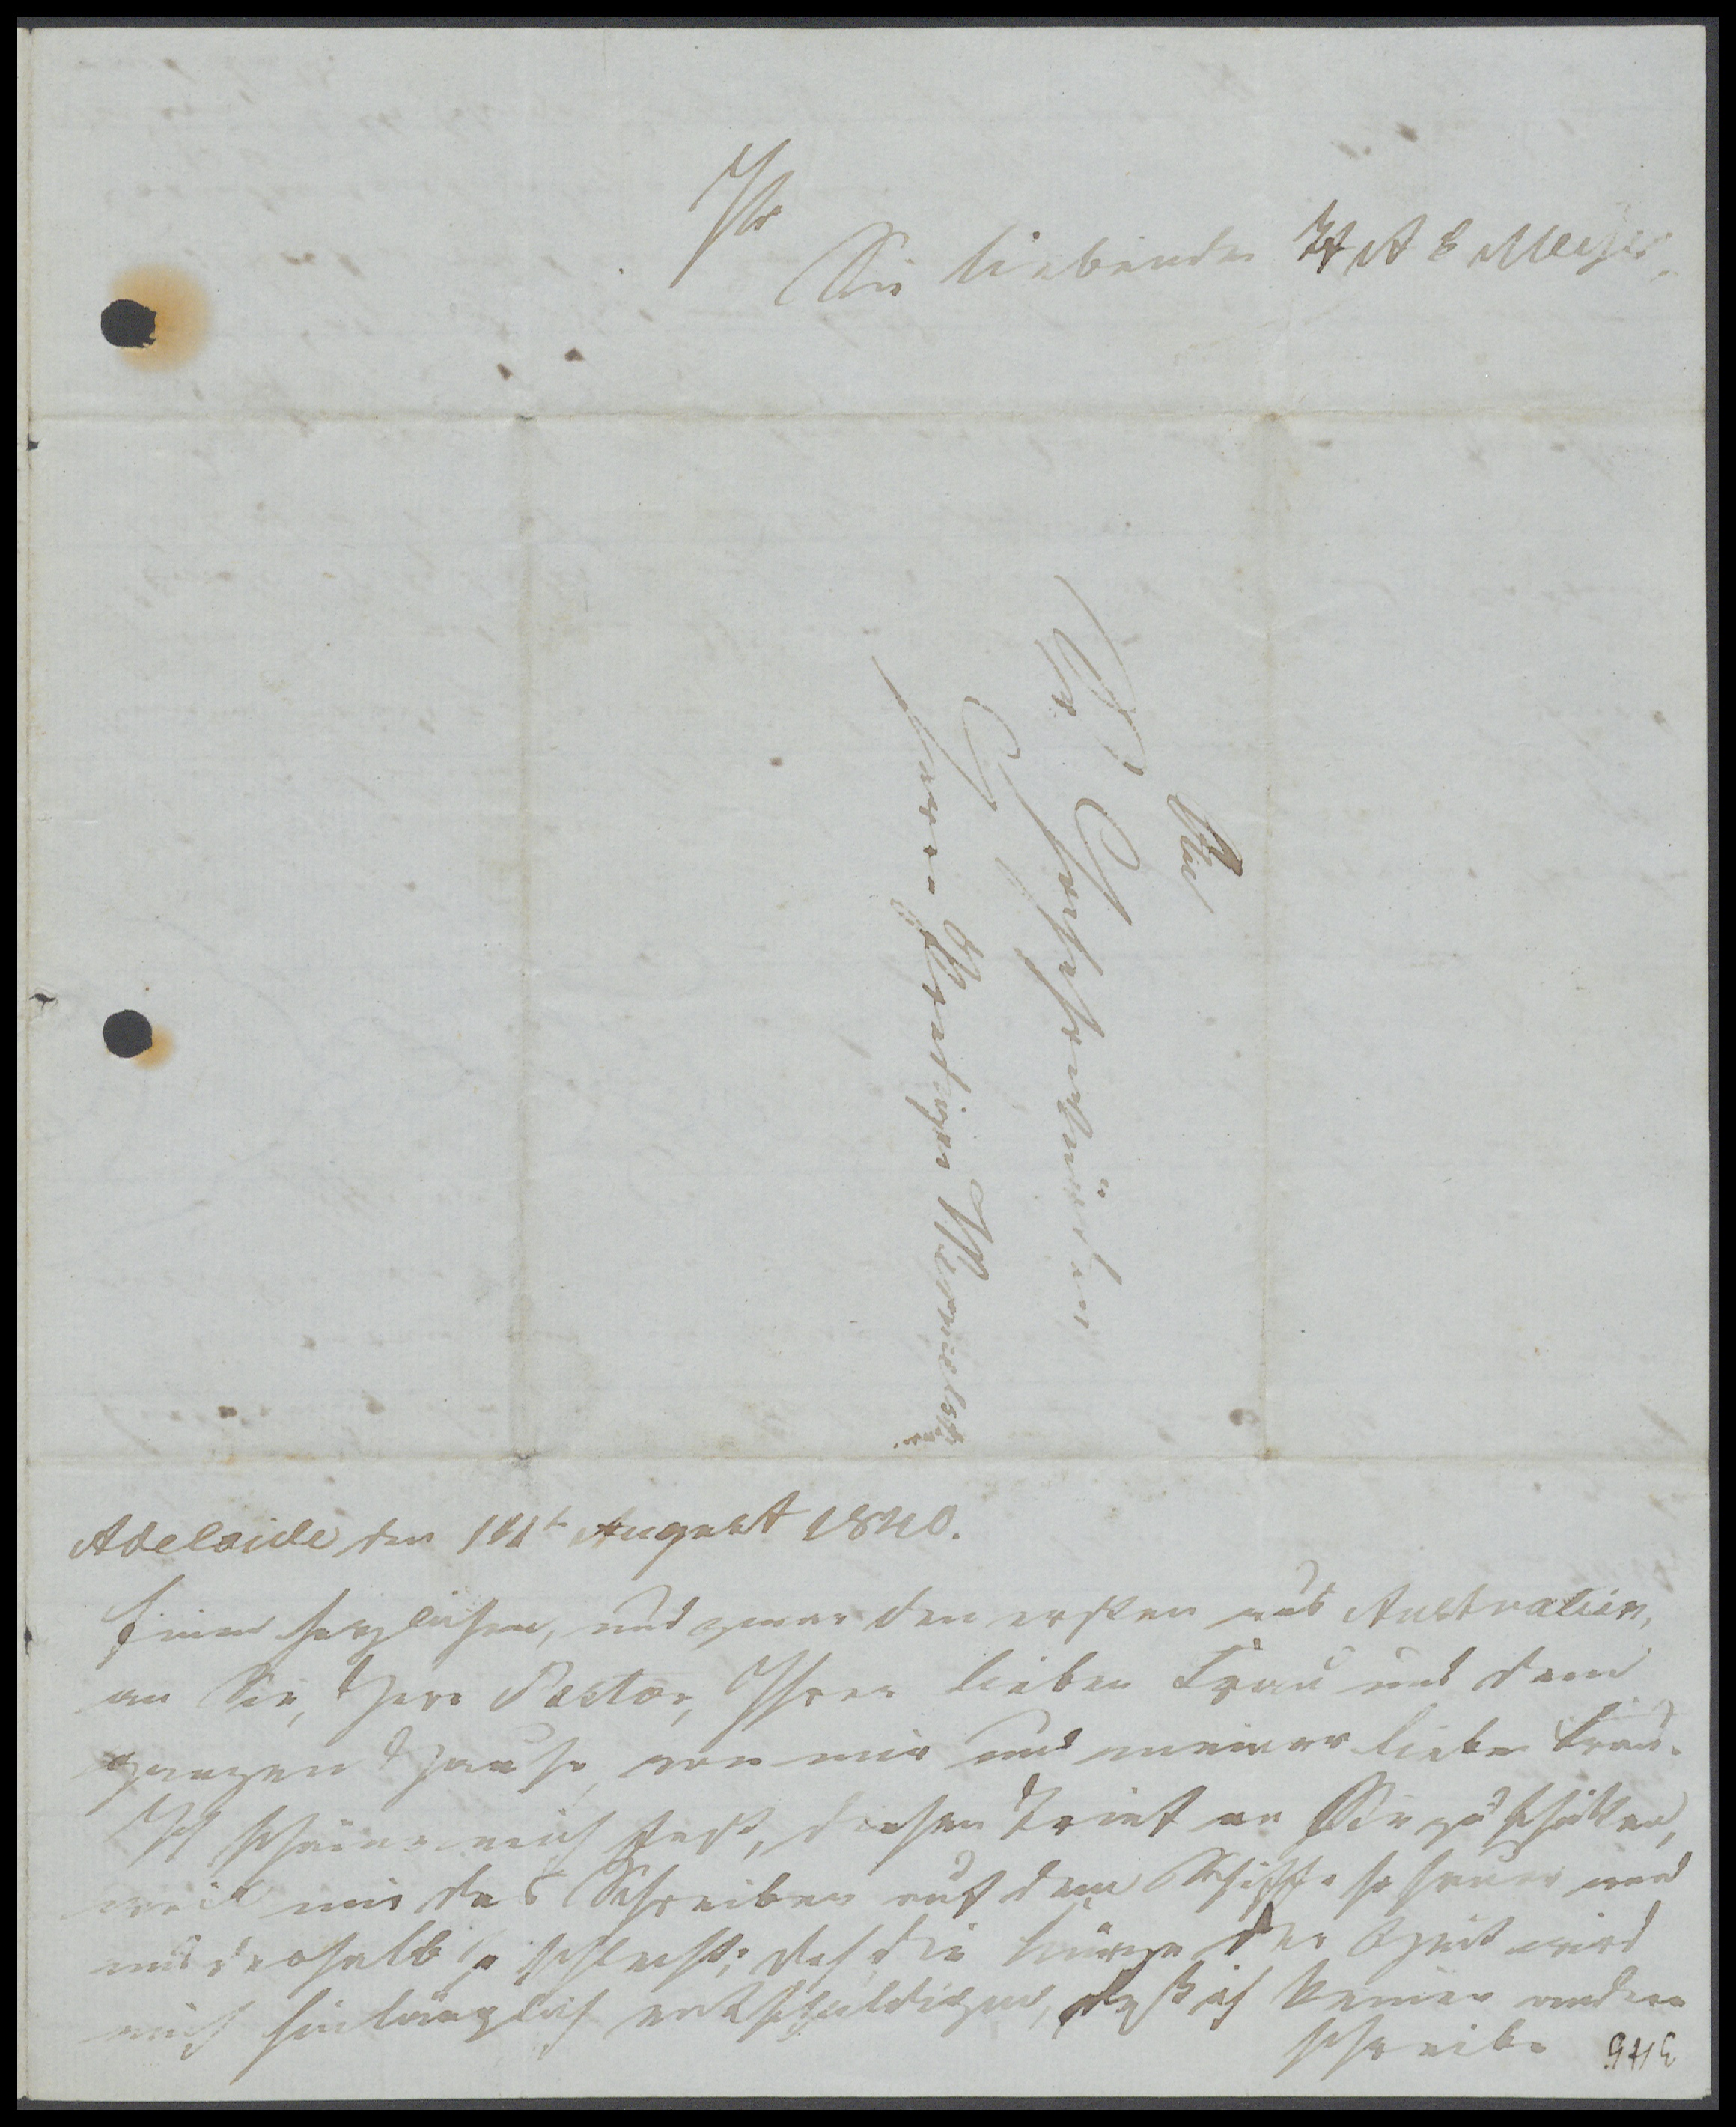 Ihr
Sie liebender H A E Meyer.
An
Sr Hochehrwürden
Herrn Prediger Wermelskirch
Adelaide den 14t August 1840.
Einen herzlichen, und zwar den ersten aus Australien,
an Sie, Herr Pastor, Ihrer lieben Frau und dem
ganzen Hause, von mir und meiner lieben Frau.
Ich schäme mich fast, diesen Brief an Sie zu schicken,
weil mir das Schreiben auf dem Schiffe so sauer ward
und deshalb so schlecht; doch die Kürze der Zeit wird
mich hinlänglich entschuldigen, daß ich keinen andern
schreibe